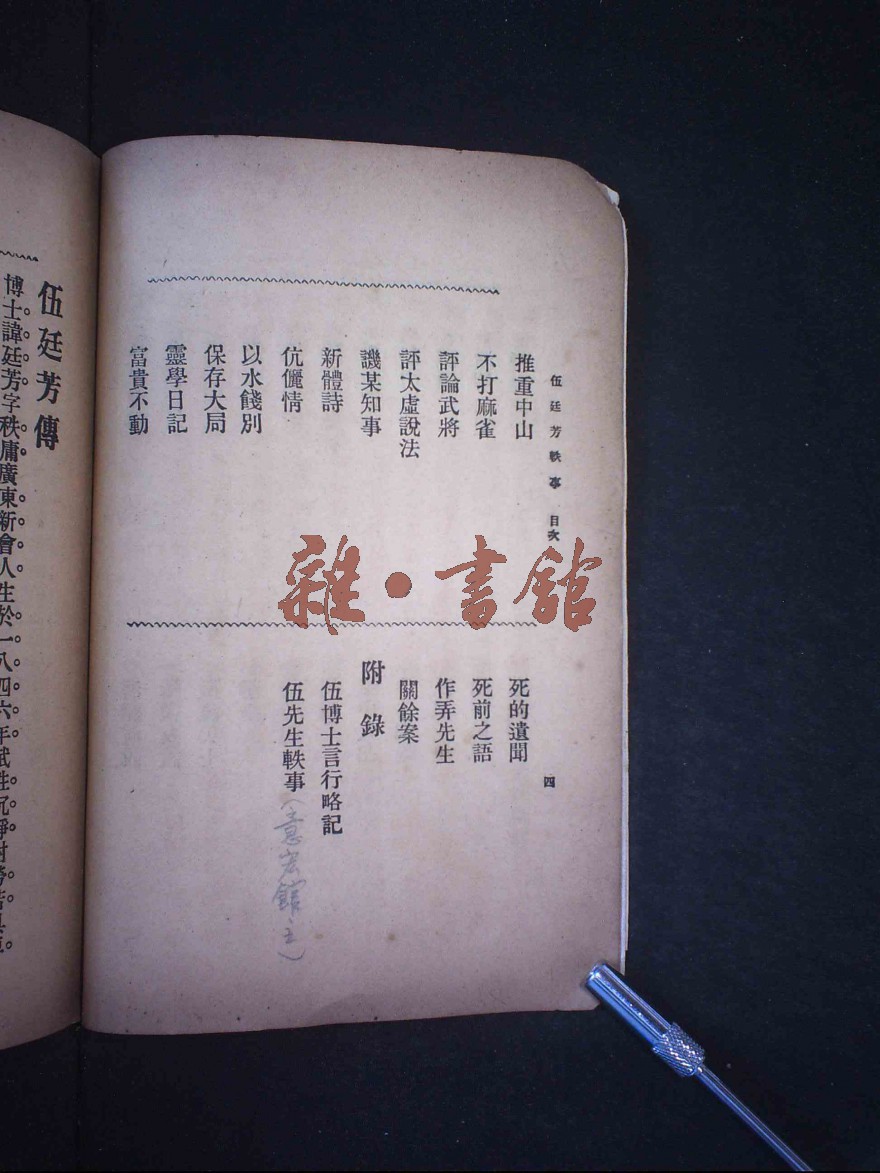 伍廷芳軼事 目次
四
推重中山
不打麻雀
評論武將
評太虛說法
譏某知事
新體詩
伉儷情
以水餞別
保存大局
靈學日記
富貴不動
死的遺聞
死前之語
作弄先生
關餘案
附錄
伍博士言行略記
伍先生軼事(意宏館主)
雜·書館
伍廷芳傳
博士諱廷芳字秩庸廣東新會人生於一八四六年賦性沉靜